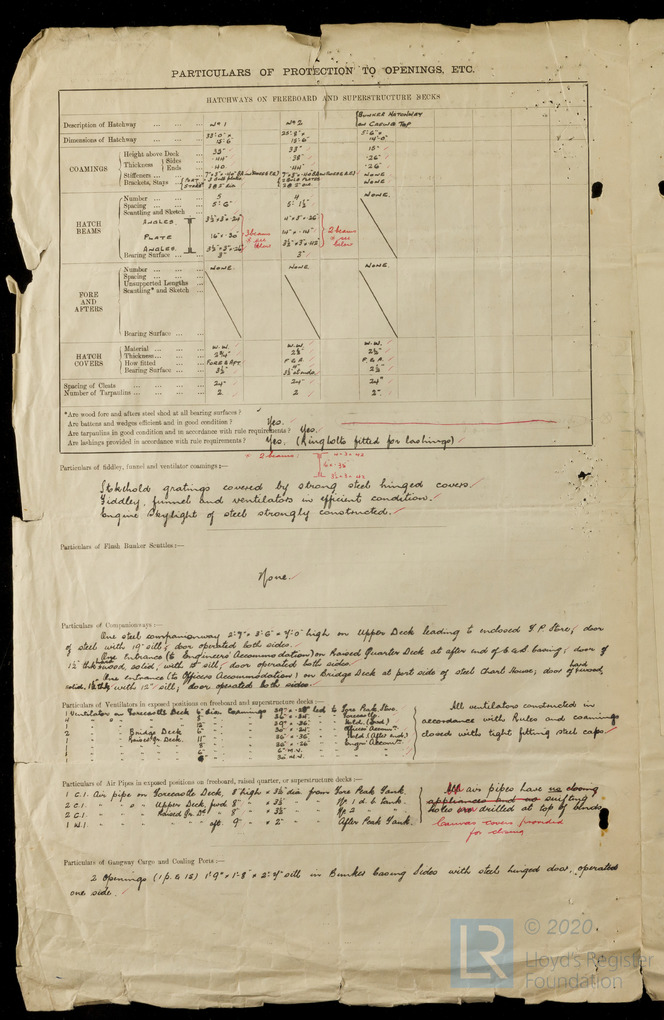 PARTICULARS OF PROTECTION TO OPENINGS, ETC.
HATCHWAYS ON FREEBOARD AND SUPERSTRUCTURE DECKS
Description of Hatchway ... No 1 No 2 BUNKER HATCHWAY ON CASING TOP
Dimensions of Hatchway ... 15'.6" 15'.6" 14'.0"
COAMINGS
Height above Deck ... 33" 33" 15"
Thickness Sides .44" 38" .26"
Ends .40 .44" .26"
Stiffeners ... NONE
Brackets, Stays ... NONE
HATCH BEAMS
Number ... 5 4 NONE
Spacing ... 5'.6" 5'.1½"
Scantling and Sketch ...
ANGLES 3½ × 3 × .26"
PLATE 16" × .30" 3 beams * see below 2 beams * see below
ANGLES
Bearing Surface ... 3" 3"
FORE AND AFTERS
Number ... NONE NONE NONE
Spacing ...
Unsupported Lengths
Scantling* and Sketch ...
Bearing Surface ...
HATCH COVERS
Material ... W.W. W.W. W.W.
Thickness ... 2¾" 2½" 2½"
How fitted ... FORE & AFT F & A. F & A.
Bearing Surface ... 3½" 2½"
Spacing of Cleats ... 24" 24" 24"
Number of Tarpaulins ... 2 2 2
*Are wood fore and afters steel shod at all bearing surfaces?
Are battens and wedges efficient and in good condition? Yes.
Are tarpaulins in good condition and in accordance with rule requirements? Yes.
Are lashings provided in accordance with rule requirements? Yes. (Ringbolts fitted for lashings)
* 2 beams:
Particulars of fiddley, funnel and ventilator coamings:—
Stokehold gratings covered by strong steel hinged covers.
Fiddley, funnel and ventilators in efficient condition.
Engine Skylight of steel strongly constructed.
Particulars of Flush Bunker Scuttles:—
None.
Particulars of Companionways:—
One steel companionway 2'.9" × 3'.6" × 7'.0" high on Upper Deck leading to enclosed F.P. Store; door
of steel with 19" sill; door operated both sides.
One Entrance (to Engineers Accommodation) on Raised Quarter Deck at after end of E & B Casing; door of
1½" thk hard wood, solid, with 15" sill; door operated both sides.
One entrance (to Officers Accommodation) on Bridge Deck at port side of steel Chart House; door of hard wood,
solid, 1½" thk, with 12" sill; door operated both sides.
Particulars of Ventilators in exposed positions on freeboard and superstructure decks:—
1 Ventilator on Forecastle Deck 6" dia. Coamings led to Fore Peak Store. All ventilators constructed in
Forecastle.
Hold (fwd) accordance with Rules and coamings
2 Bridge Deck 6" Officers Accomn. closed with tight fitting steel caps.
2 Raised Qr. Deck. 11" Hold (After end)
Engrs Accomn.
Particulars of Air Pipes in exposed positions on freeboard, raised quarter, or superstructure decks:—
1 C.I. Air pipe on Forecastle Deck, 8" high × 3½" dia. from Fore Peak Tank. All air pipes have no closing
2 C.I. " " " Upper Deck, fwd 8" " × 3½" " No 1 d.b. tank. appliances and no snifting
2 C.I. " " " Raised Qr. Dk 8" " × 3½" " No 2 " " holes are drilled at top of bends.
1 W.I. " " " " aft. 9" " × 2" " After Peak Tank. Canvas covers provided
for closing
Particulars of Gangway Cargo and Coaling Ports:—
2 Openings (1 p. & 1 s) 1'.9" × 1'.8" × 2'.4" sill in Bunker Casing Sides with steel hinged door, operated
one side.
© 2020
LR
Lloyd's Register
Foundation